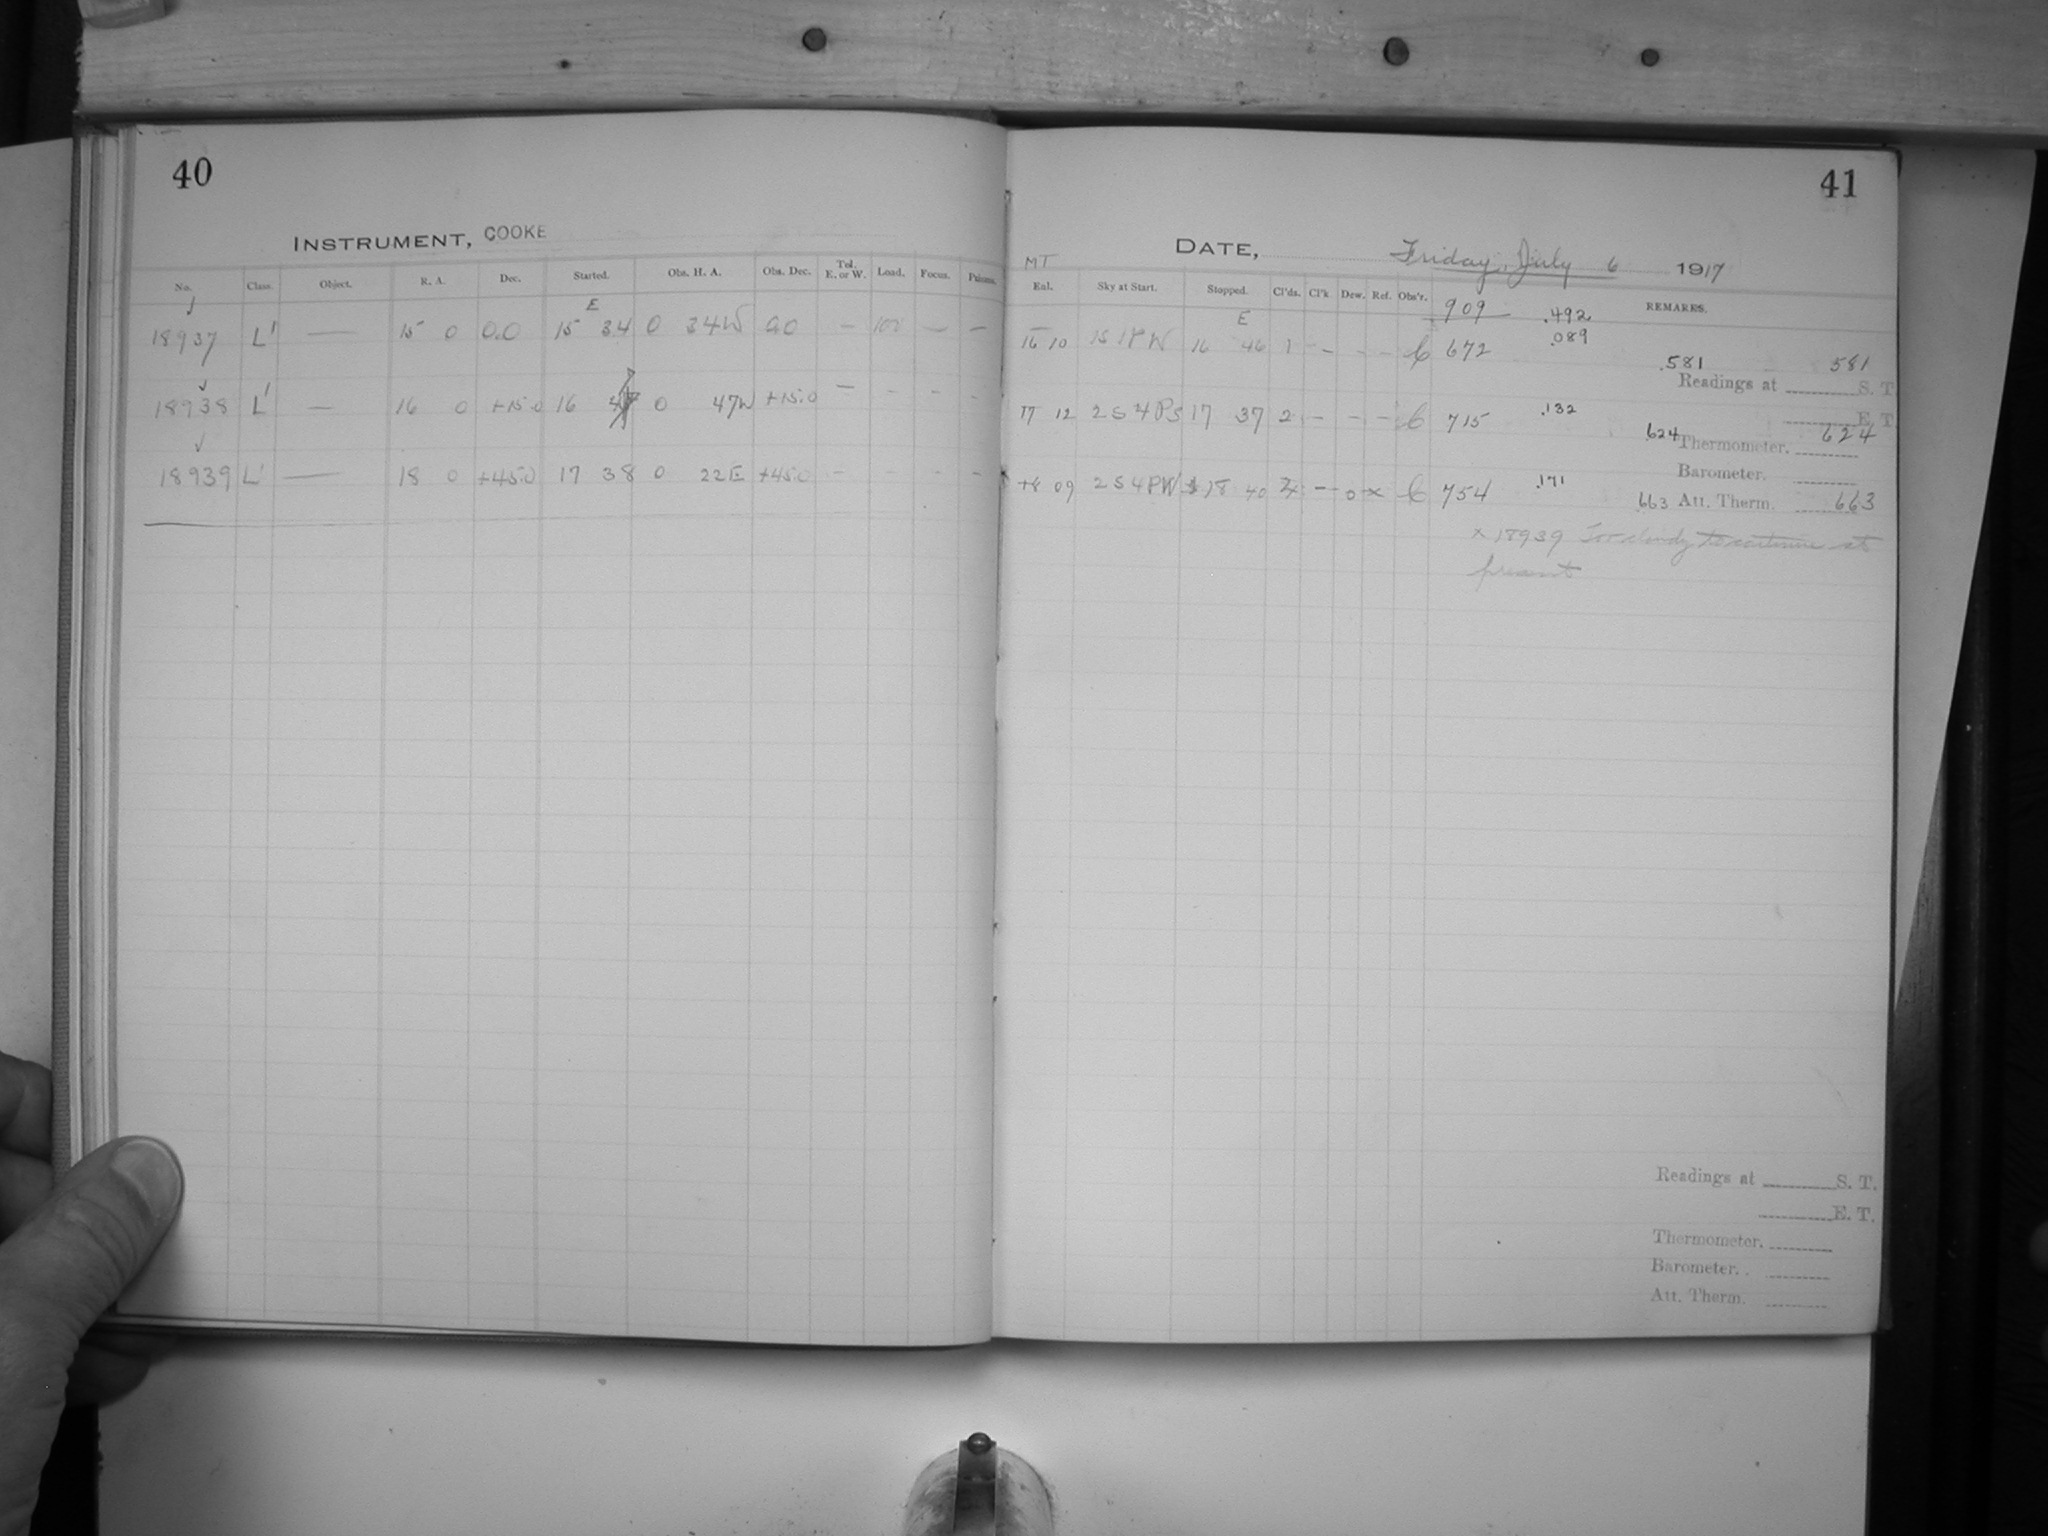 40
INSTRUMENT, COOKE
No. Class. Object. R. A. Dec. Started. Obs. H. A. Obs. Dec. Tel. E. or W. Load. Focus. Prisms.
E
18937 L' — 15 0 0.0 15 34 0 34W 0.0 — 100 — —
18938 L' — 16 0 +15.0 16 47 0 47W +15.0 — - - -
18939 L' — 18 0 +45.0 17 38 0 22E +45.0 - - - -
41
DATE, Friday, July 6 1917
MT
Enl. Sky at Start. Stopped. Cl'ds. Cl'k Dew. Ref. Obs'r. REMARKS.
909 .492
E
.089
16 10 16 46 1 - - - - C 672
.581 581
Readings at S. T.
E. T.
17 12 2 S 4 PS 17 37 2 - - - C 715 .132
624 624
Thermometer.
Barometer.
18 09 2 S 4 PW 18 40 — 0 x C 754 .171
663 Att. Therm. 663
x 18939 Too cloudy to continue at
present
Readings at S. T.
E. T.
Thermometer.
Barometer. .
Att. Therm.